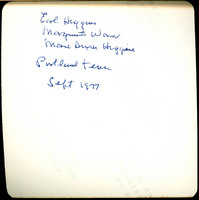 Earl Huggins
Marguerite Warner
Marie Dixon Huggins
Portland Tenn
Sept 1977